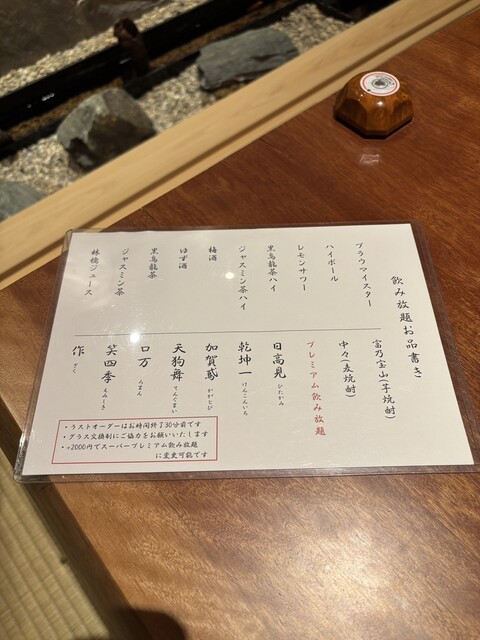 飲み放題お品書き
ブラウマイスター
ハイボール
レモンサワー
黒烏龍茶ハイ
ジャスミン茶ハイ
梅酒
ゆず酒
黒烏龍茶
ジャスミン茶
林檎ジュース
富乃宝山(芋焼酎)
中々(麦焼酎)
プレミアム飲み放題
日高見 ひたかみ
乾坤一 けんこんいち
加賀鳶 かがとび
天狗舞 てんぐまい
口万 ろまん
笑四季 えみしき
作 ざく
・ラストオーダーはお時間終了30分前です
・グラス交換制にご協力をお願いいたします
・+2000円でスーパープレミアム飲み放題
に変更可能です